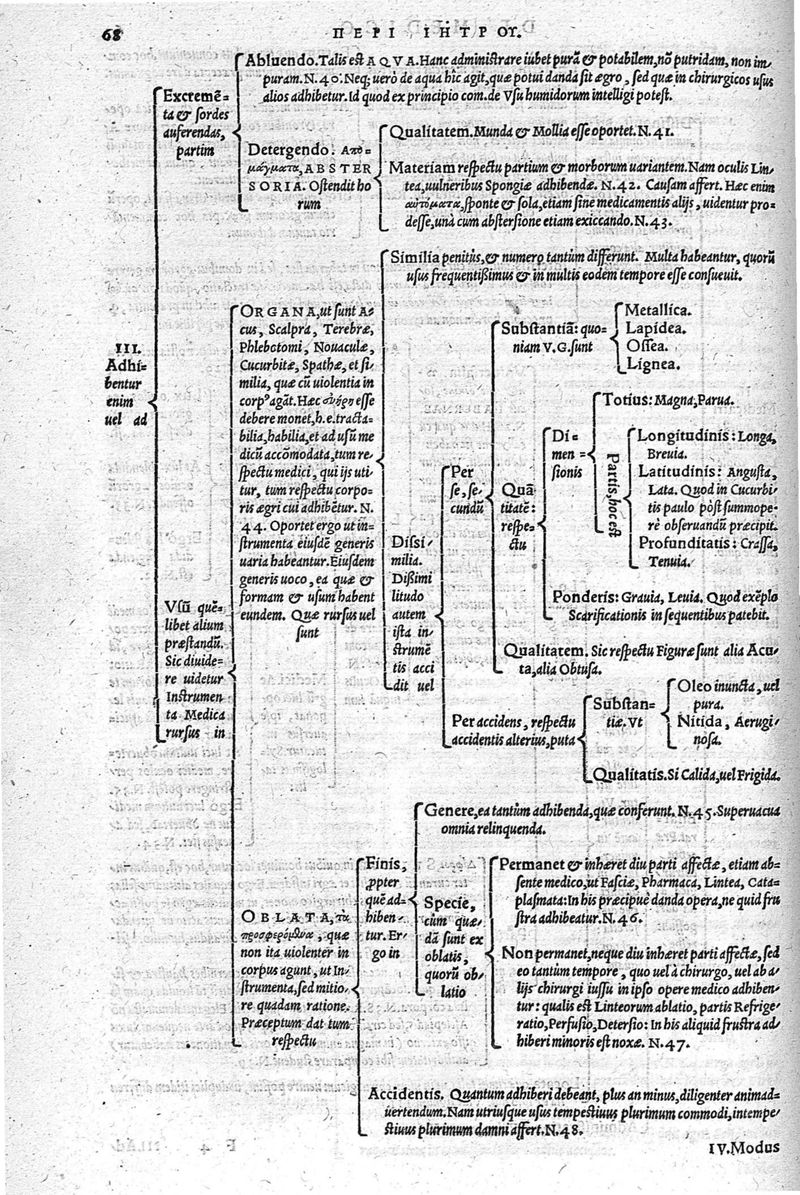 68
ΠΕΡΙ ΙΗΤΡΟΥ.
III.
Adhi-
bentur
enim
uel ad
Excremẽ-
ta & sordes
auferendas,
partim
Abluendo. Talis est AQVA. Hanc administrare iubet purã & potabilem, nõ putridam, non im-
puram. N. 40. Neq; uerò de aqua hic agit, quæ potui danda sit ægro, sed quæ in chirurgicos usus
alios adhibetur. Id quod ex principio com. de Vsu humidorum intelligi potest.
Detergendo. Απο-
μάγματα, ABSTER
SORIA. Ostendit ho
rum
Qualitatem. Munda & Mollia esse oportet. N. 41.
Materiam respectu partium & morborum uariantem. Nam oculis Lin-
tea, uulneribus Spongiæ adhibendæ. N. 42. Causam affert. Hæc enim
αυτόματα, sponte & sola, etiam sine medicamentis alijs, uidentur pro-
desse, unà cum abstersione etiam exiccando. N. 43.
Vsũ quẽ-
libet alium
præstandũ.
Sic diuide-
re uidetur
Instrumen
ta Medica
rursus in
ORGANA, ut sunt A-
cus, Scalpra, Terebræ,
Phlebotomi, Nouaculæ,
Cucurbitæ, Spathæ, et si-
milia, quæ cũ uiolentia in
corpꝰ agãt. Hæc esse
debere monet, h. e. tracta-
bilia, habilia, et ad usũ me
dicũ accõmodata, tum re-
spectu medici, qui ijs uti-
tur, tum respectu corpo-
ris ægri cui adhibẽtur. N.
44. Oportet ergo ut in-
strumenta eiusdẽ generis
uaria habeantur. Eiusdem
generis uoco, ea quæ &
formam & usum habent
eundem. Quæ rursus uel
sunt
Similia penitùs, & numero tantùm differunt. Multa habeantur, quorũ
usus frequentißimus & in multis eodem tempore esse consueuit.
Dissi-
milia.
Dissimi
litudo
autem
ista in-
strumẽ
tis acci
dit uel
Per
se, se-
cundũ
Substantiã: quo-
niam V. G. sunt
Metallica.
Lapidea.
Ossea.
Lignea.
Quã
titatẽ:
respe-
ctu
Di-
men-
sionis
Totius: Magna, Parua.
Partis, hoc est
Longitudinis: Longa,
Breuia.
Latitudinis: Angusta,
Lata. Quod in Cucurbi-
tis paulo pòst summope-
rè obseruandũ præcipit.
Profunditatis: Crassa,
Tenuia.
Ponderis: Grauia, Leuia. Quod exẽplo
Scarificationis in sequentibus patebit.
Qualitatem. Sic respectu Figuræ sunt alia Acu-
ta, alia Obtusa.
Per accidens, respectu
accidentis alterius, puta
Substan-
tiæ. Vt
Oleo inuncta, uel
pura.
Nitida, Aerugi-
nosa.
Qualitatis. Si Calida, uel Frigida.
OBLATA, τα
προσφερόμθνα, quæ
non ita uiolenter in
corpus agunt, ut In-
strumenta, sed mitio-
re quadam ratione.
Præceptum dat tum
respectu
Finis,
ꝓpter
quẽ ad-
hiben-
tur. Er-
go in
Genere, ea tantùm adhibenda, quæ conferunt. N. 45. Superuacua
omnia relinquenda.
Specie,
cùm quæ-
dã sunt ex
oblatis,
quorũ ob-
latio
Permanet & inhæret diu parti affectæ, etiam ab-
sente medico, ut Fasciæ, Pharmaca, Lintea, Cata-
plasmata: In his præcipuè danda opera, ne quid fru
stra adhibeatur. N. 46.
Non permanet, neque diu inhæret parti affectæ, sed
eo tantùm tempore, quo uel à chirurgo, uel ab a-
lijs chirurgi iussu in ipso opere medico adhiben-
tur: qualis est Linteorum ablatio, partis Refrige-
ratio, Perfusio, Detersio: In his aliquid frustra ad-
hiberi minoris est noxæ. N. 47.
Accidentis. Quantum adhiberi debeant, plus an minus, diligenter animad-
uertendum. Nam utriusque usus tempestiuus plurimum commodi, intempe-
stiuus plurimum damni affert. N. 48.
IV. Modus